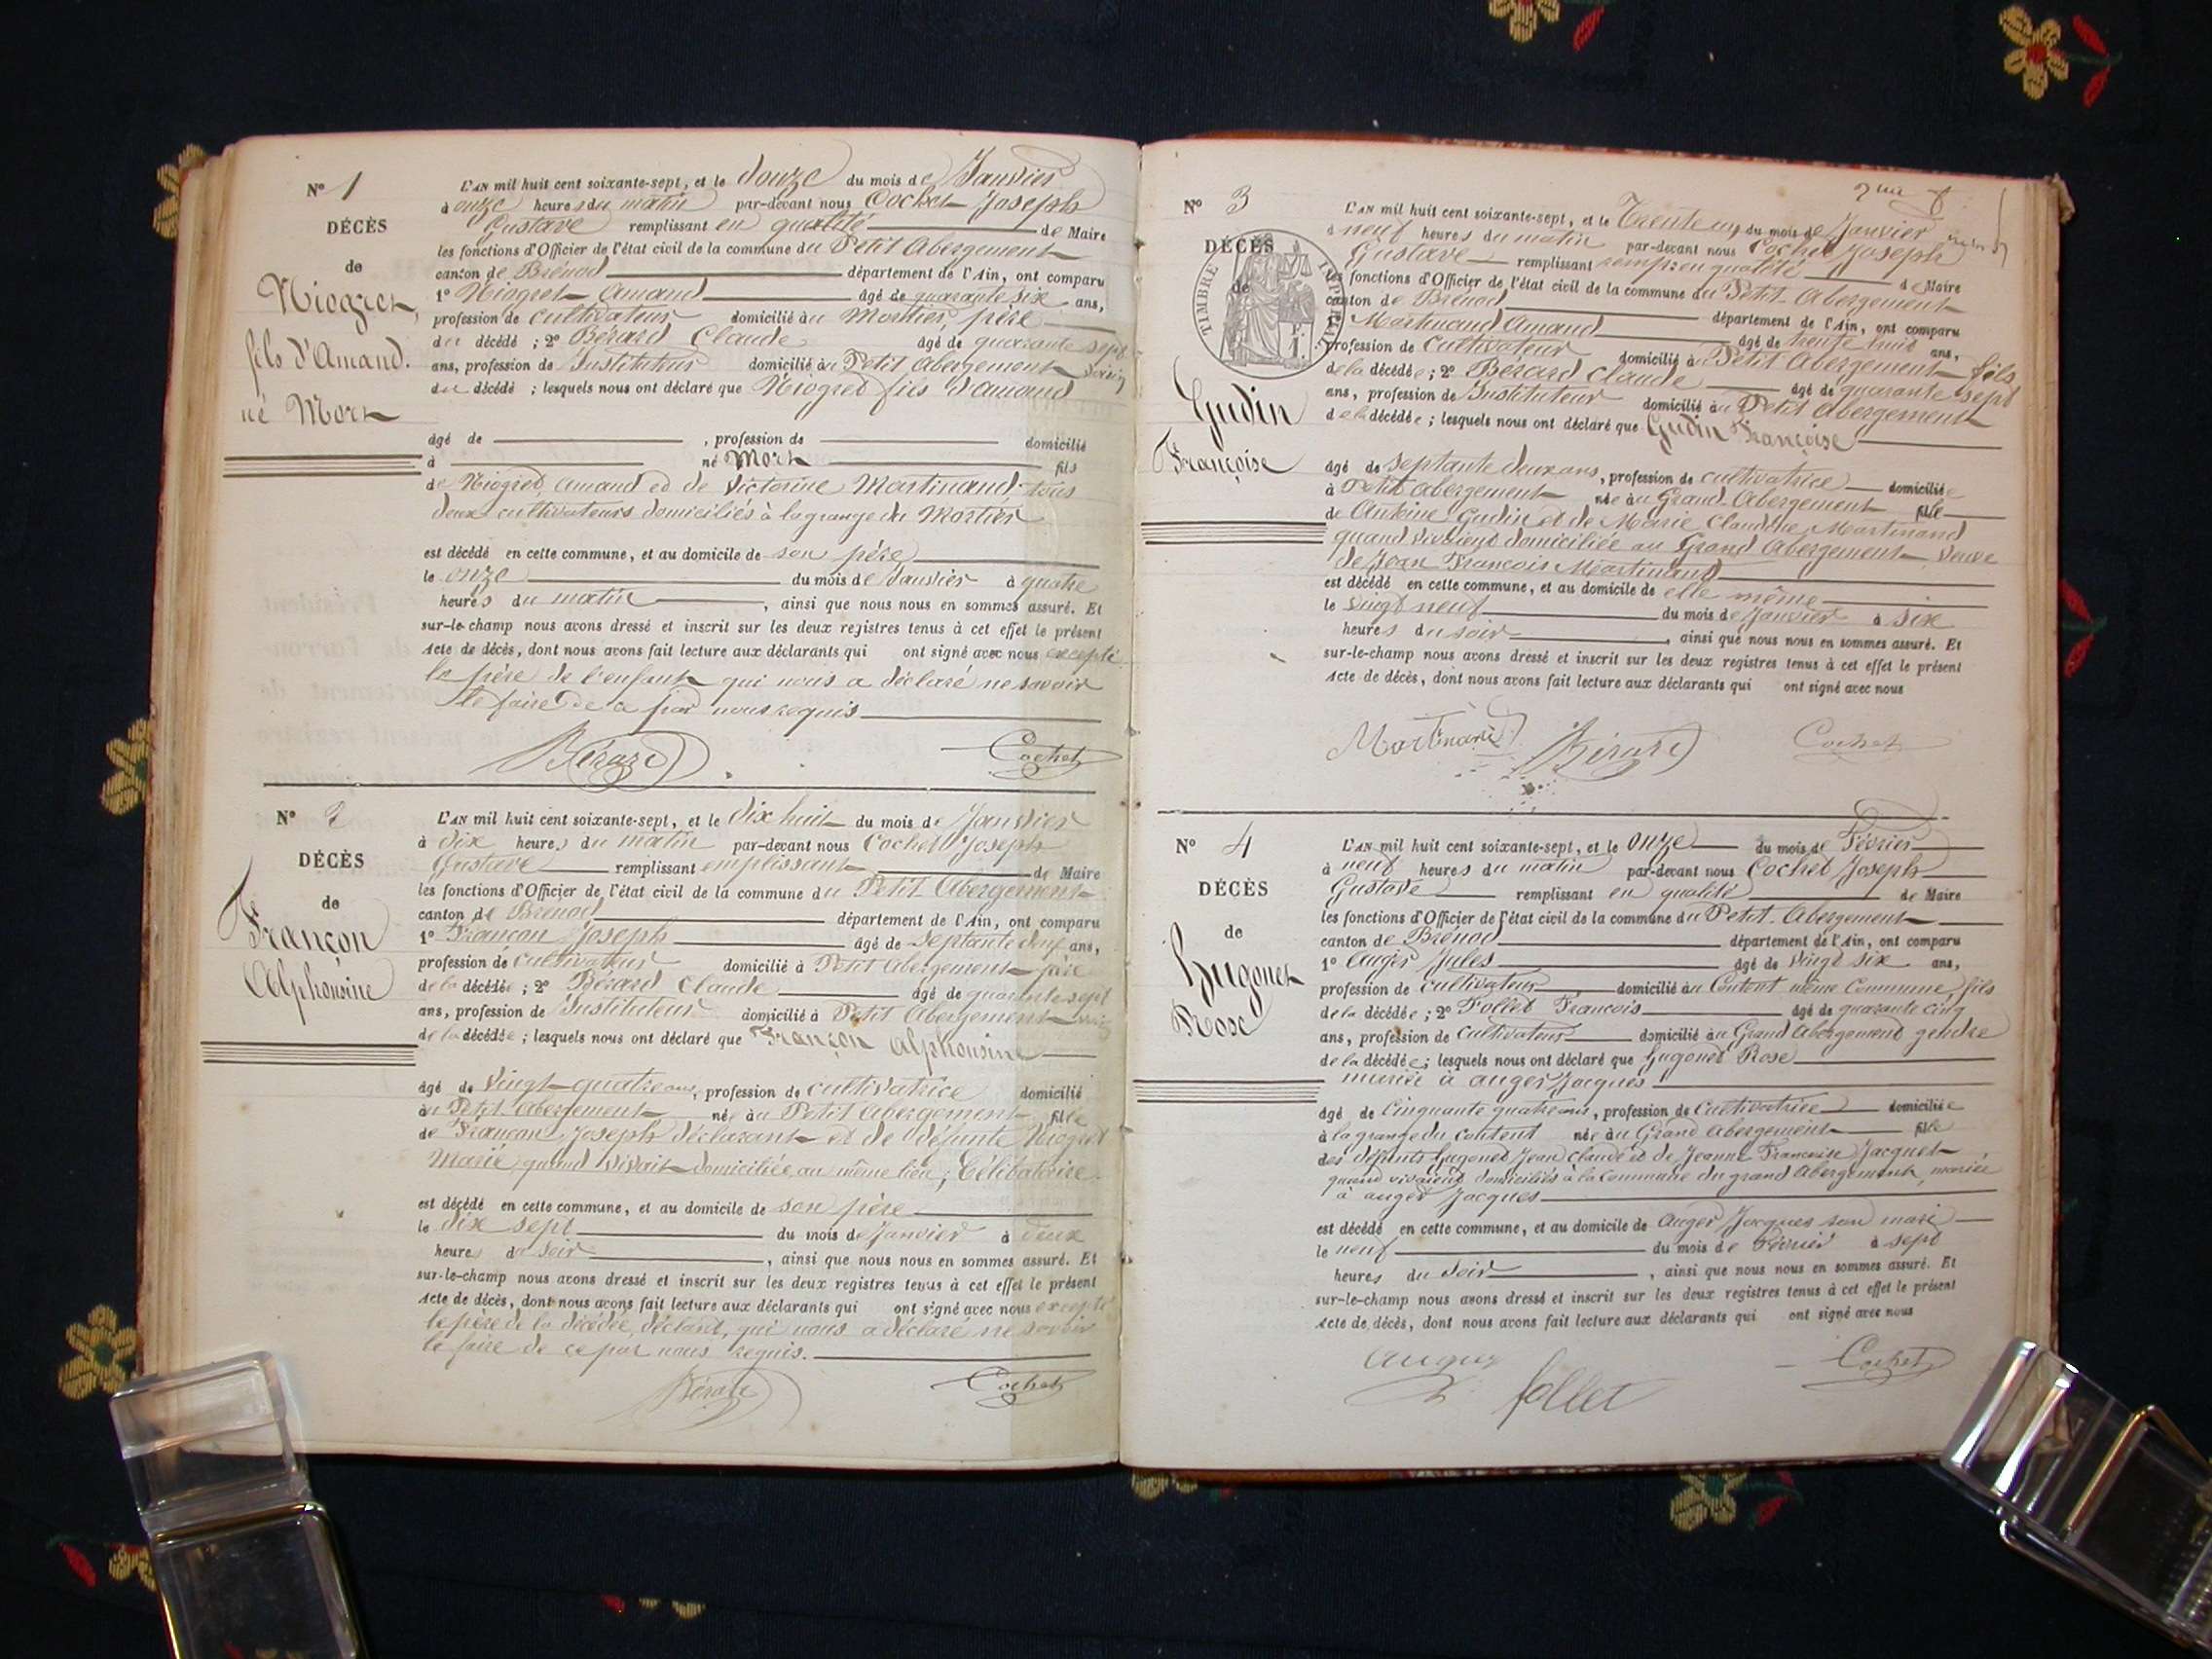 N° 1
DÉCÈS
de
Niogret,
fils d'Amand.
né Mort
L'AN mil huit cent soixante-sept, et le douze du mois de Janvier
à onze heures du matin par-devant nous Cochet Joseph
Gustave remplissant en qualité de Maire
les fonctions d'Officier de l'état civil de la commune du Petit Abergement
canton de Brénod département de l'Ain, ont comparu
1° Niogret Amand âgé de quarante six ans,
profession de cultivateur domicilié au Mortier, père
du décédé ; 2° Bérard Claude âgé de quarante sept
ans, profession de Instituteur domicilié au Petit Abergement voisin
du décédé ; lesquels nous ont déclaré que Niogret fils d'amand
âgé de , profession de domicilié
à né Mort fils
de Niogret Amand et de Victorine Martinand, tous
deux cultivateurs domiciliés à la grange du Mortier
est décédé en cette commune, et au domicile de son père
le onze du mois de Janvier à quatre
heures du matin , ainsi que nous nous en sommes assuré. Et
sur-le-champ nous avons dressé et inscrit sur les deux registres tenus à cet effet le présent
Acte de décès, dont nous avons fait lecture aux déclarants qui ont signé avec nous excepté
le père de l'enfant qui nous a déclaré ne savoir
le faire de ce par nous requis
Bérard Cochet
N° 2
DÉCÈS
de
Françon
Alphonsine
L'AN mil huit cent soixante-sept, et le dix huit du mois de Janvier
à dix heures du matin par-devant nous Cochet Joseph
Gustave remplissant emplissant de Maire
les fonctions d'Officier de l'état civil de la commune du Petit Abergement
canton de Brénod département de l'Ain, ont comparu
1° Françon Joseph âgé de septante neuf ans,
profession de cultivateur domicilié à Petit Abergement père
de la décédée ; 2° Bérard Claude âgé de quarante sept
ans, profession de Instituteur domicilié à Petit Abergement voisin
de la décédée ; lesquels nous ont déclaré que Françon Alphonsine
âgé de vingt-quatre ans, profession de cultivatrice domicilié
au Petit Abergement née au Petit Abergement fille
de Françon Joseph déclarant et de défunte Niogret
Marie, quand vivait domiciliée au même lieu, Célibataire.
est décédé en cette commune, et au domicile de son père
le dix sept du mois de Janvier à deux
heures du soir , ainsi que nous nous en sommes assuré. Et
sur-le-champ nous avons dressé et inscrit sur les deux registres tenus à cet effet le présent
Acte de décès, dont nous avons fait lecture aux déclarants qui ont signé avec nous excepté
le père de la décédée, déclart, qui nous a déclaré ne savoir
le faire de ce par nous requis.
Bérard Cochet
N° 3
DÉCÈS
de
TIMBRE IMPERIAL
F.
1.
Gudin
Françoise
L'AN mil huit cent soixante-sept, et le Trente un du mois de Janvier
à neuf heures du matin par-devant nous Cochet Joseph
Gustave remplissant en qualité de Maire
les fonctions d'Officier de l'état civil de la commune du Petit Abergement
canton de Brénod département de l'Ain, ont comparu
1° Martinand Amand âgé de trente huit ans,
profession de Cultivateur domicilié au Petit Abergement fils
de la décédée ; 2° Bérard Claude âgé de quarante sept
ans, profession de Instituteur domicilié au Petit Abergement
de la décédée ; lesquels nous ont déclaré que Gudin Françoise
âgé de septante deux ans, profession de cultivatrice domiciliée
à Petit Abergement née au Grand-Abergement fille
de Antoine Gudin et de Marie Claudine Martinand
quand vivaient domiciliée au Grand Abergement veuve
de Jean François Martinand
est décédé en cette commune, et au domicile de elle même
le vingt neuf du mois de Janvier à six
heures du soir , ainsi que nous nous en sommes assuré. Et
sur-le-champ nous avons dressé et inscrit sur les deux registres tenus à cet effet le présent
Acte de décès, dont nous avons fait lecture aux déclarants qui ont signé avec nous
Martinand Bérard Cochet
N° 4
DÉCÈS
de
Hugonet
Rose
L'AN mil huit cent soixante-sept, et le onze du mois de Février
à neuf heures du matin par-devant nous Cochet Joseph
Gustave remplissant en qualité de Maire
les fonctions d'Officier de l'état civil de la commune du Petit Abergement
canton de Brénod département de l'Ain, ont comparu
1° Auger Jules âgé de vingt six ans,
profession de cultivateur domicilié au Content même Commune fils
de la décédée ; 2° Follet François âgé de quarante cinq
ans, profession de Cultivateur domicilié au Grand Abergement gendre
de la décédée ; lesquels nous ont déclaré que Hugonet Rose
mariée à auger Jacques
âgé de Cinquante quatre ans, profession de Cultivatrice domiciliée
à la grange du Content née au Grand Abergement fille
des défunts Hugonet Jean Claude et de Jeanne Françoise Jacquet
quand vivaient domiciliés à la Commune du grand Abergement, mariée
à auger Jacques
est décédé en cette commune, et au domicile de Auger Jacques son mari
le neuf du mois de Février à sept
heures du soir , ainsi que nous nous en sommes assuré. Et
sur-le-champ nous avons dressé et inscrit sur les deux registres tenus à cet effet le présent
Acte de décès, dont nous avons fait lecture aux déclarants qui ont signé avec nous
Auger follet Cochet